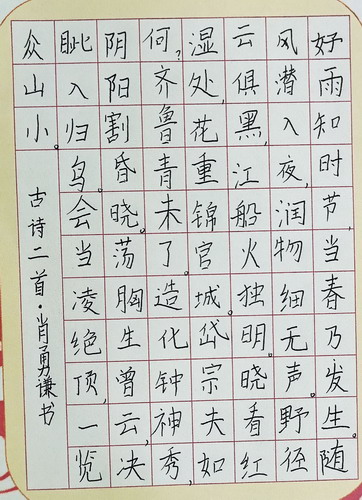 好雨知时节,当春乃发生。随
风潜入夜,润物细无声。野径
云俱黑,江船火独明。晓看红
湿处,花重锦官城。岱宗夫如
何?齐鲁青未了。造化钟神秀,
阴阳割昏晓。荡胸生曾云,决
眦入归鸟。会当凌绝顶,一览
众山小。
古诗二首·肖勇谦书